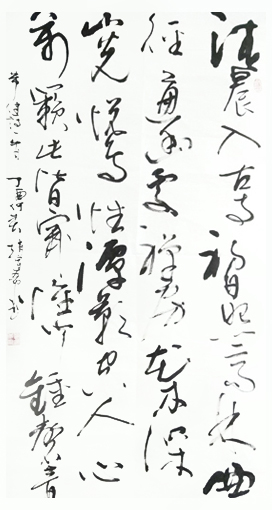 清晨入古寺初日照高林曲
徑通幽處禪房花木深
山光悅鳥性潭影空人心
萬籟此皆寂惟聞鐘磬音
常建詩一首 丁酉